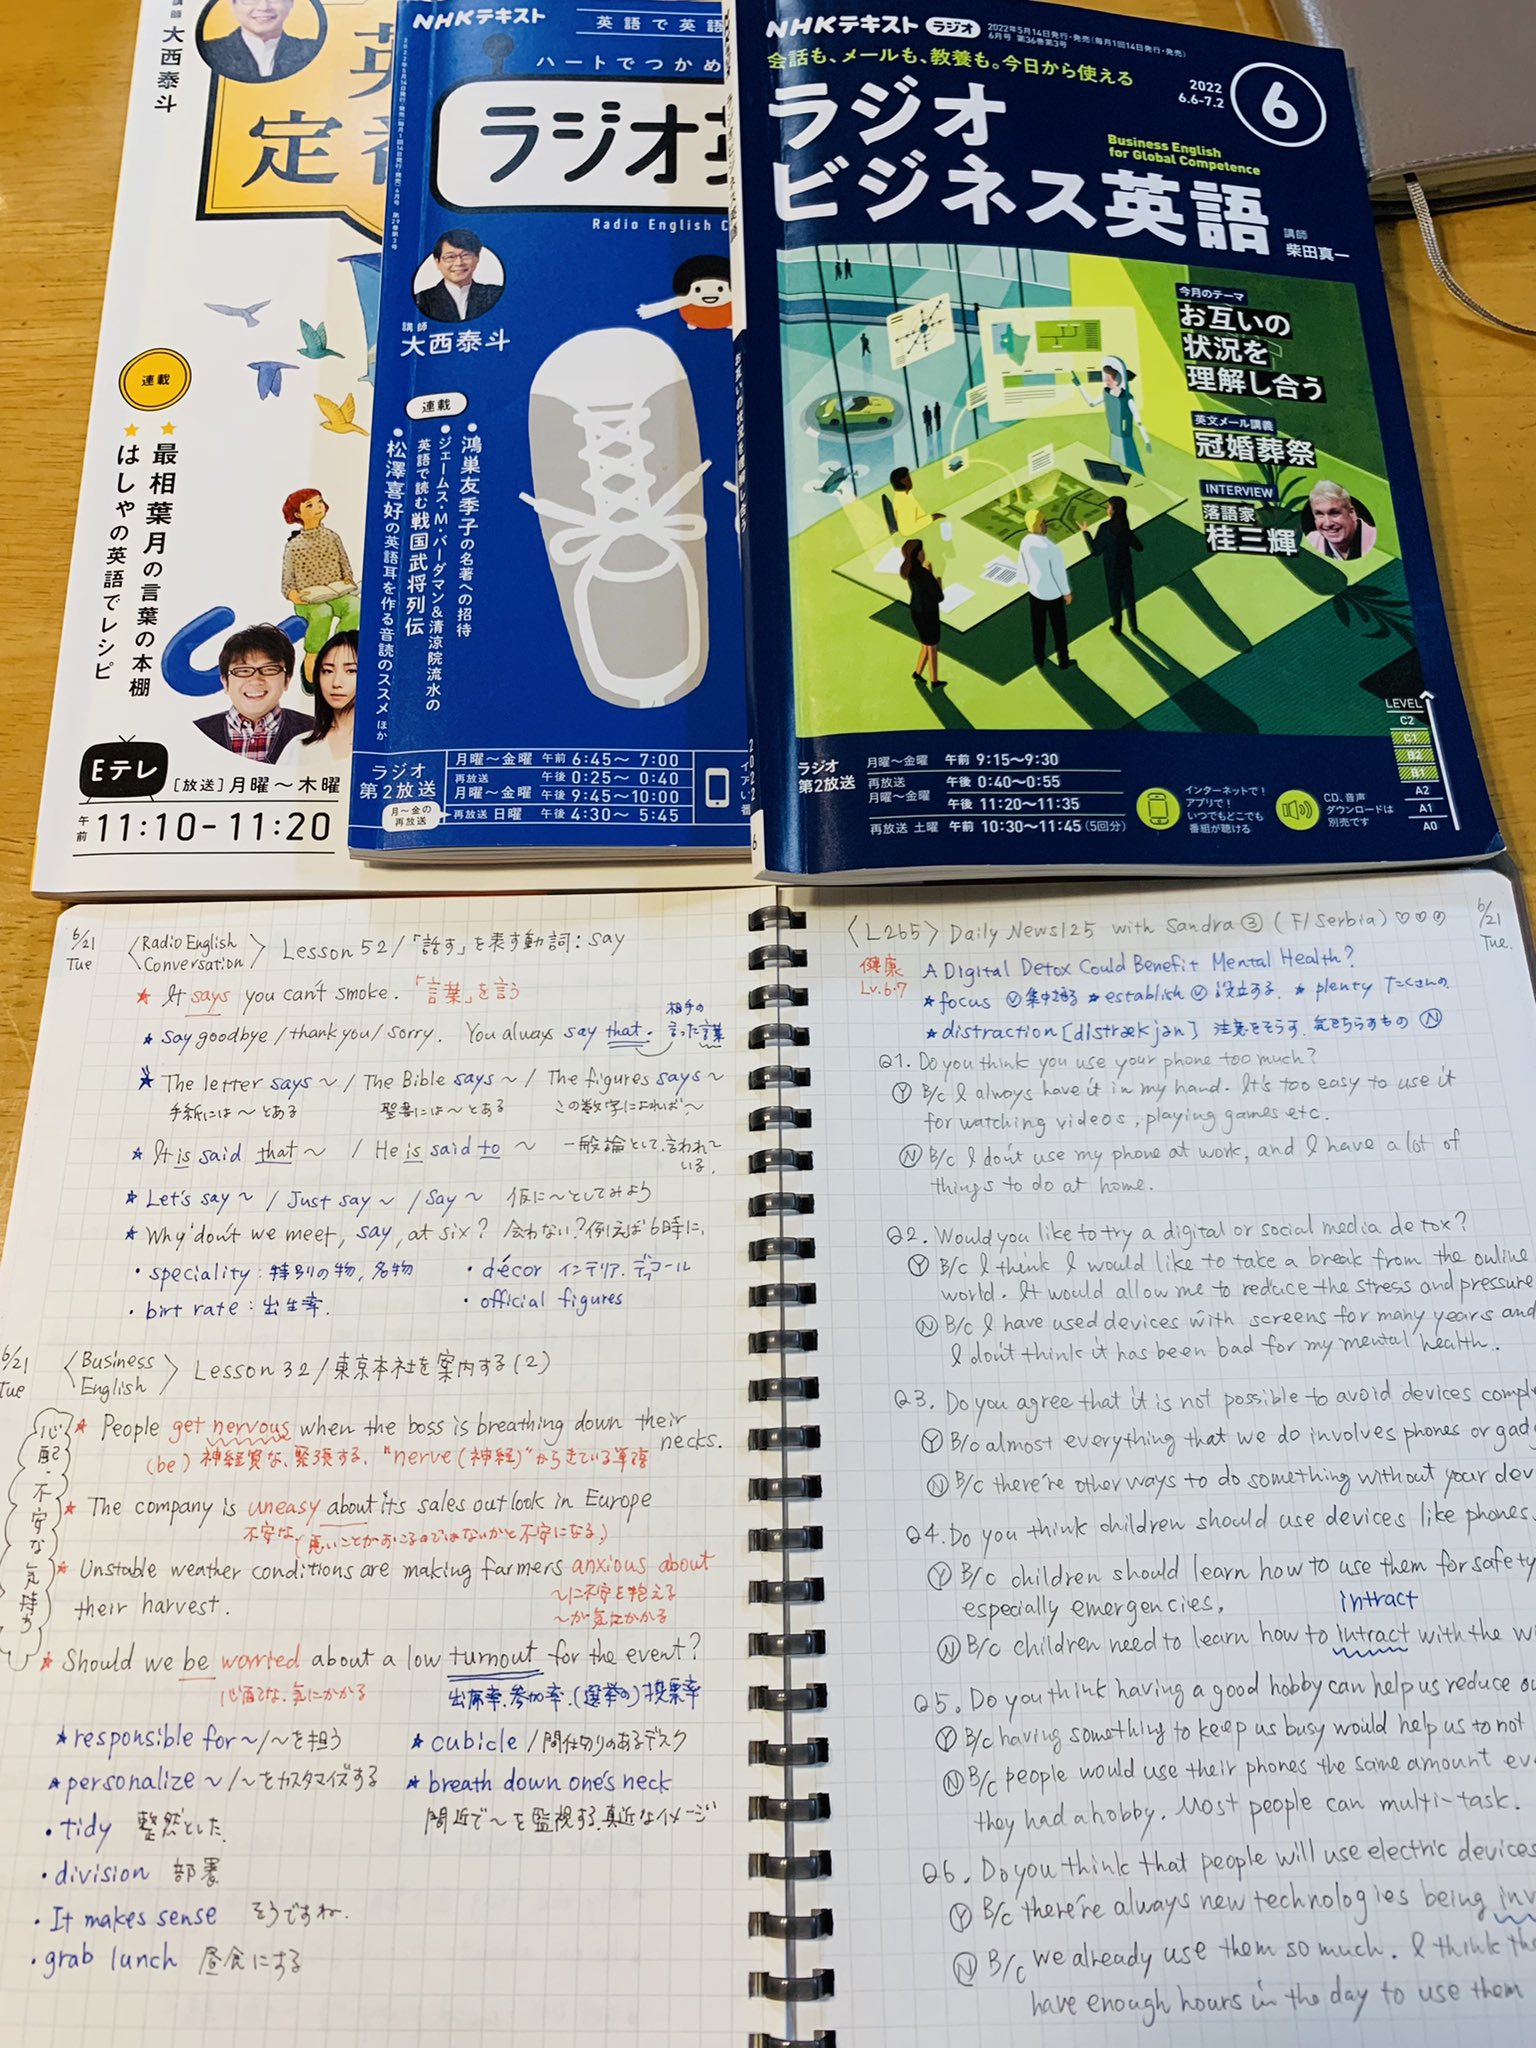 講師 大西泰斗
英
定
連載
最相葉月の言葉の本棚
はしゃの英語でレシピ
Eテレ
[放送]月曜～木曜
午前 11:10-11:20
NHKテキスト
英語で英語
ハートでつかめ
ラジオ英
Radio English C
講師
大西泰斗
連載
●鴻巣友季子の名著への招待
●ジェームス・M・バーダマン&清涼院流水の
英語で読む戦国武将列伝
●松澤喜好の英語耳を作る音読のススメ ほか
ラジオ
第2放送
月曜～金曜 午前 6:45～ 7:00
再放送 午後 0:25～ 0:40
月曜～金曜 午後 9:45～10:00
月～金の
再放送
再放送 日曜 午後 4:30～ 5:45
NHKテキスト ラジオ
2022年5月14日発行・発売(毎月1回14日発行・発売)
6月号 第36巻第3号
会話も、メールも、教養も。今日から使える
ラジオ
ビジネス英語
2022
6.6-7.2
6
Business English
for Global Competence
講師
柴田真一
今月のテーマ
お互いの
状況を
理解し合う
英文メール講義
冠婚葬祭
INTERVIEW
落語家
桂三輝
LEVEL
C2
C1
B2
B1
A2
A1
A0
ラジオ
第2放送
月曜～金曜 午前 9:15～9:30
再放送 午後 0:40～0:55
月曜～金曜
午後 11:20～11:35
再放送 土曜 午前 10:30～11:45 (5回分)
インターネットで!
アプリで!
いつでもどこでも
番組が聴ける
CD、音声
ダウンロードは
別売です
6/21
Tue
〈Radio English
Conversation〉 Lesson 52/「話す」を表す動詞: say
★ It says you can't smoke. 「言葉」を言う
★ Say goodbye / thank you / sorry. You always say that. 相手の
言った言葉
★ The letter says ～ / The Bible says ～ / The figures says ～
手紙には～とある 聖書には～とある この数字によれば～
★ It is said that ～ / He is said to ～ 一般論として、言われて
いる。
★ Let's say ～ / Just say ～ / Say ～ 仮に～としてみよう
★ Why don't we meet, say, at six? 会わない?例えば6時に、
・speciality: 特別の物, 名物 ・décor インテリア. デコール
・birt rate: 出生率. ・official figures
6/21
Tue
〈Business
English〉 Lesson 32/東京本社を案内する(2)
心配・不安な気持ち
★ People get nervous when the boss is breathing down their
necks.
(be) 神経質な、緊張する、"nerve(神経)"からきている単語
★ The company is uneasy about its sales outlook in Europe
不安な(悪いことがおこるのではないかと不安になる)
★ Unstable weather conditions are making farmers anxious about
their harvest. ～に不安を抱える
～が気にかかる
★ Should we be worried about a low turnout for the event?
心配な、気にかかる 出席率.参加率.(選挙の)投票率
★ responsible for ～/～を担う ★ cubicle / 間仕切りのあるデスク
★ personalize ～/～をカスタマイズする ★ breath down one's neck
・tidy 整然とした 間近で～を監視する.真近なイメージ
・division 部署
・It makes sense そうですね.
・grab lunch 昼食にする
〈L265〉 Daily News125 with Sandra ③ (F/Serbia) ♡♡♡
6/21
Tue.
健康
Lv.6-7
A Digital Detox Could Benefit Mental Health?
★ focus Ⓥ集中する ★ establish Ⓥ 設立する. ★ plenty たくさんの
★ distraction [dIstrækʃən] 注意をそらす. 気をちらすもの Ⓝ
Q1. Do you think you use your phone too much?
Ⓨ B/c I always have it in my hand. It's too easy to use it
for watching videos, playing games etc.
Ⓝ B/c I don't use my phone at work, and I have a lot of
things to do at home.
Q2. Would you like to try a digital or social media detox?
Ⓨ B/c I think I would like to take a break from the online
world. It would allow me to reduce the stress and pressure
Ⓝ B/c I have used devices with screens for many years and
I don't think it has been bad for my mental health.
Q3. Do you agree that it is not possible to avoid devices compl
Ⓨ B/c almost everything that we do involves phones or gad
Ⓝ B/c there're other ways to do something without your dev
Q4. Do you think children should use devices like phones.
Ⓨ B/c children should learn how to use them for safety
especially emergencies.
intract
Ⓝ B/c children need to learn how to intract with the w
Q5. Do you think having a good hobby can help us reduce ou
Ⓨ B/c having something to keep us busy would help us to not
Ⓝ B/c people would use their phones the same amount ev
they had a hobby. Most people can multi-task.
Q6. Do you think that people will use electric devices
Ⓨ B/c there're always new technologies being inv
Ⓝ B/c we already use them so much. I think th
have enough hours in the day to use them